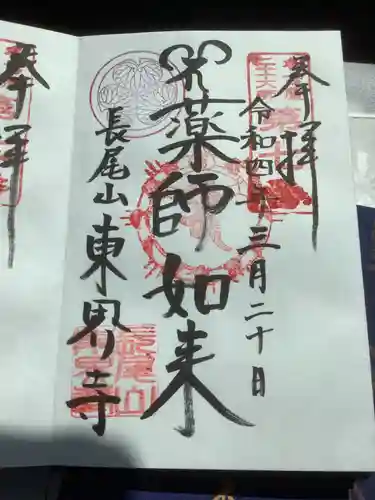 奉拝
令和四年三月二十日
薬師如来
長尾山
東界寺
奉拝